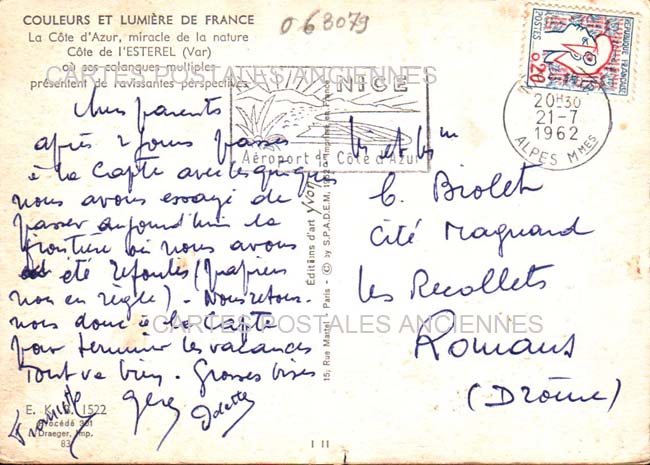 COULEURS ET LUMIÈRE DE FRANCE
La Côte d'Azur, miracle de la nature
Côte de l'ESTEREL (Var)
où ses calanques multiples
présentent de ravissantes perspectives
068079
CARTES POSTALES ANCIENNES
Chers parents
après 2 jours passés
à la Capte avec les quiques
nous avons essayé de
passer aujourd'hui la
frontière où nous avons
été refoulés (papiers
non en règle). Nous retour-
nons donc à la Capte
pour terminer les vacances
Tout va bien. Grosses bises
Françoise Gégé Odette
E. K. B. 1522
Procédé 301
Draeger, imp.
83
Éditions d'art Yvon
15, Rue Martel - Paris - © by S.P.A.D.E.M. Imprimé en France
NICE
Aéroport de Côte d'Azur
20H30
21-7
1962
ALPES MMES
RÉPUBLIQUE FRANÇAISE
POSTES
0,20
C. Briolet
Cité Magnard
Les Récollets
Romans
(Drôme)
CARTES POSTALES ANCIENNES
1 11